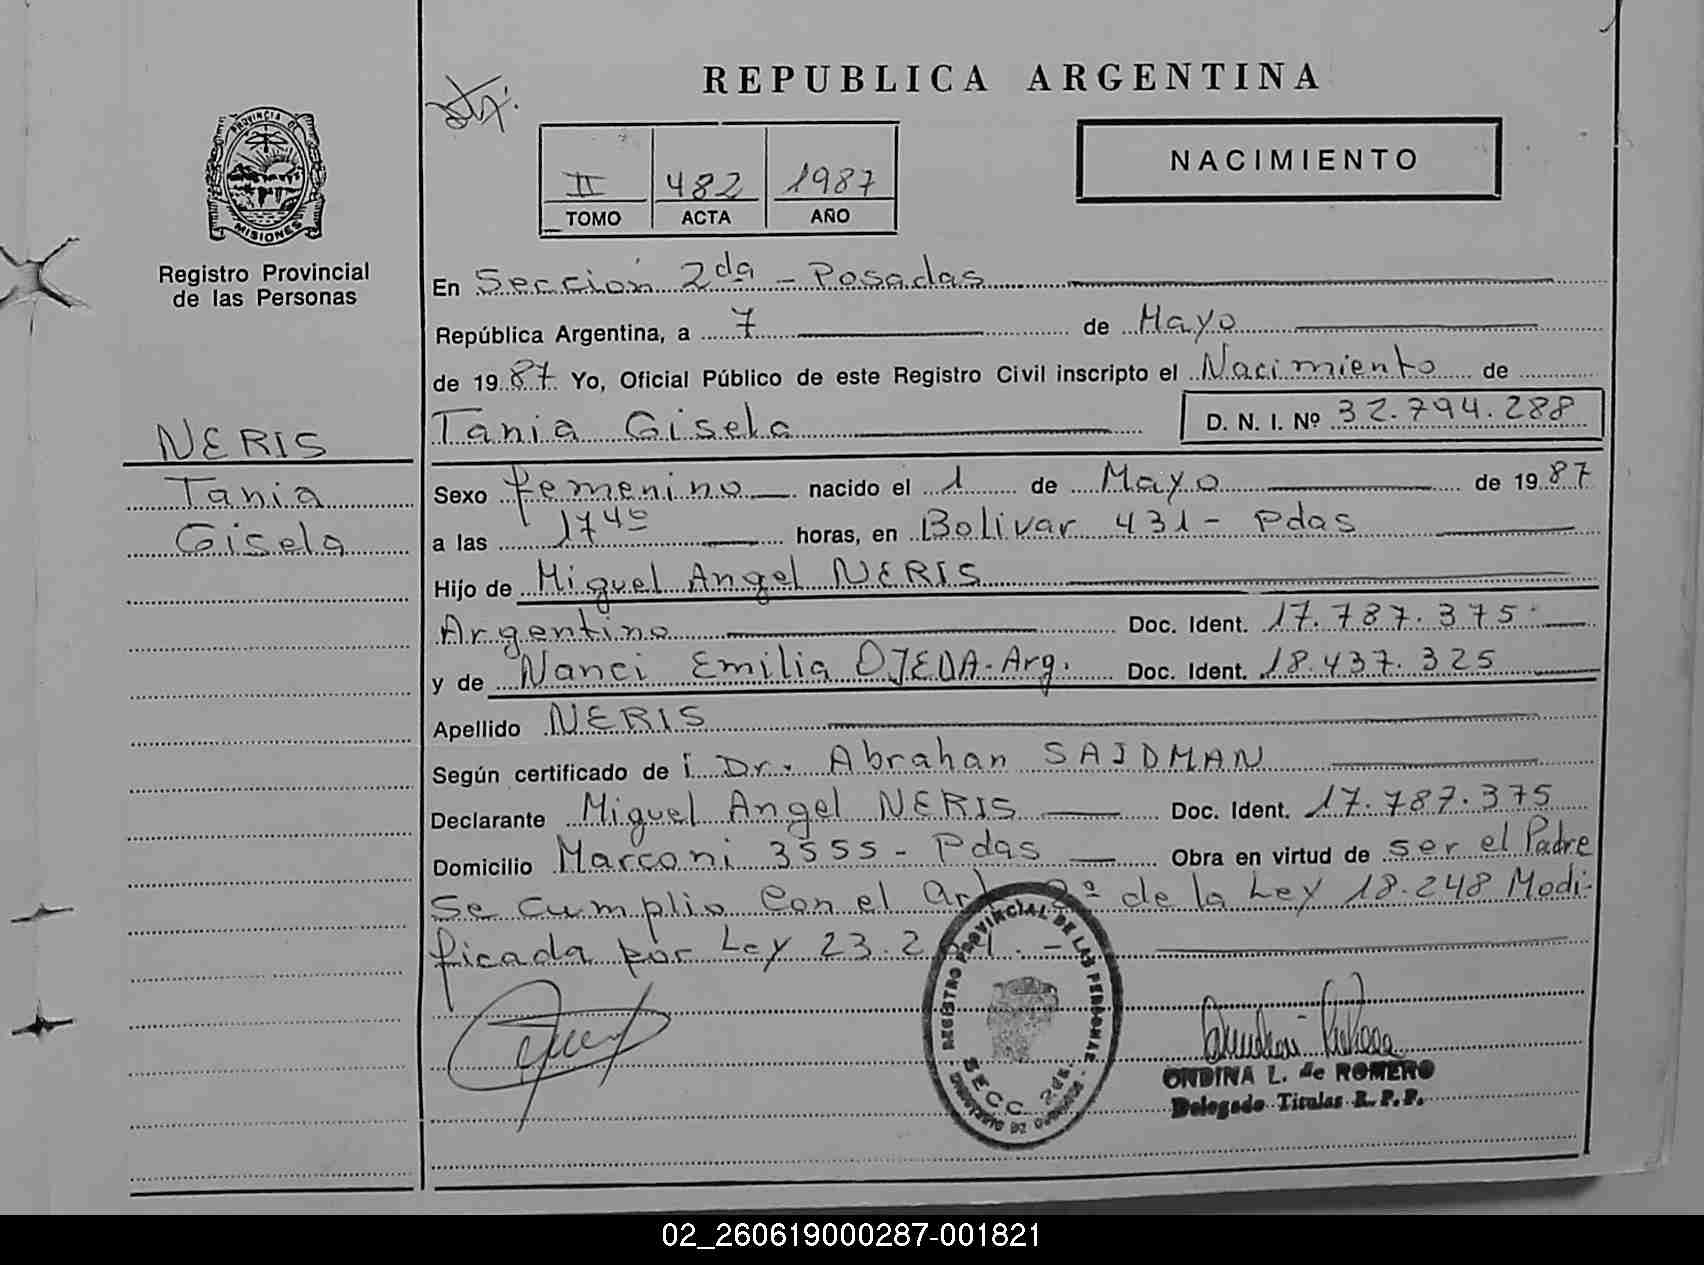 REPUBLICA ARGENTINA
PROVINCIA DE
MISIONES
Registro Provincial
de las Personas
II 482 1987
TOMO ACTA AÑO
NACIMIENTO
En Sección 2da - Posadas
República Argentina, a 7 de Mayo
de 1987 Yo, Oficial Público de este Registro Civil inscripto el Nacimiento de
Tania Gisela D. N. I. Nº 32.794.288
NERIS
Tania
Gisela
Sexo femenino nacido el 1 de Mayo de 1987
a las 17 40 horas, en Bolivar 431 - Pdas
Hijo de Miguel Angel NERIS
Argentino Doc. Ident. 17.787.375
y de Nanci Emilia OJEDA - Arg. Doc. Ident. 18.437.325
Apellido NERIS
Según certificado de Dr. Abrahan SAIDMAN
Declarante Miguel Angel NERIS Doc. Ident. 17.787.375
Domicilio Marconi 3555 - Pdas Obra en virtud de ser el Padre
Se cumplio con el Art de la Ley 18.248 Modi-
ficada por Ley
REGISTRO PROVINCIAL DE LAS PERSONAS
SECC. 2da.
ONDINA L. de ROMERO
Delegado Titular R. P. P.
02_260619000287-001821